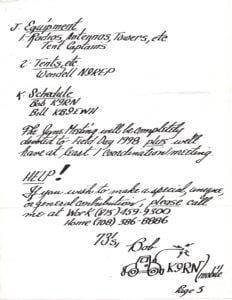 J Equipment
1- Radios, Antennas, Towers, etc
Tent Captains
2- Tents, etc.
Wendell N9REP
K. Schedule
Bob K9RN
Bill KB9EWH
The June Meeting will be completely
devoted to Field Day 1998 plus we'll
have at least 1 coordination meeting.
HELP!
If you wish to make a special,
or general contribution, please call
me at Work (815) 459-9500
Home (708) 386-8886
73's, Bob
K9RN/mobile
Page 5